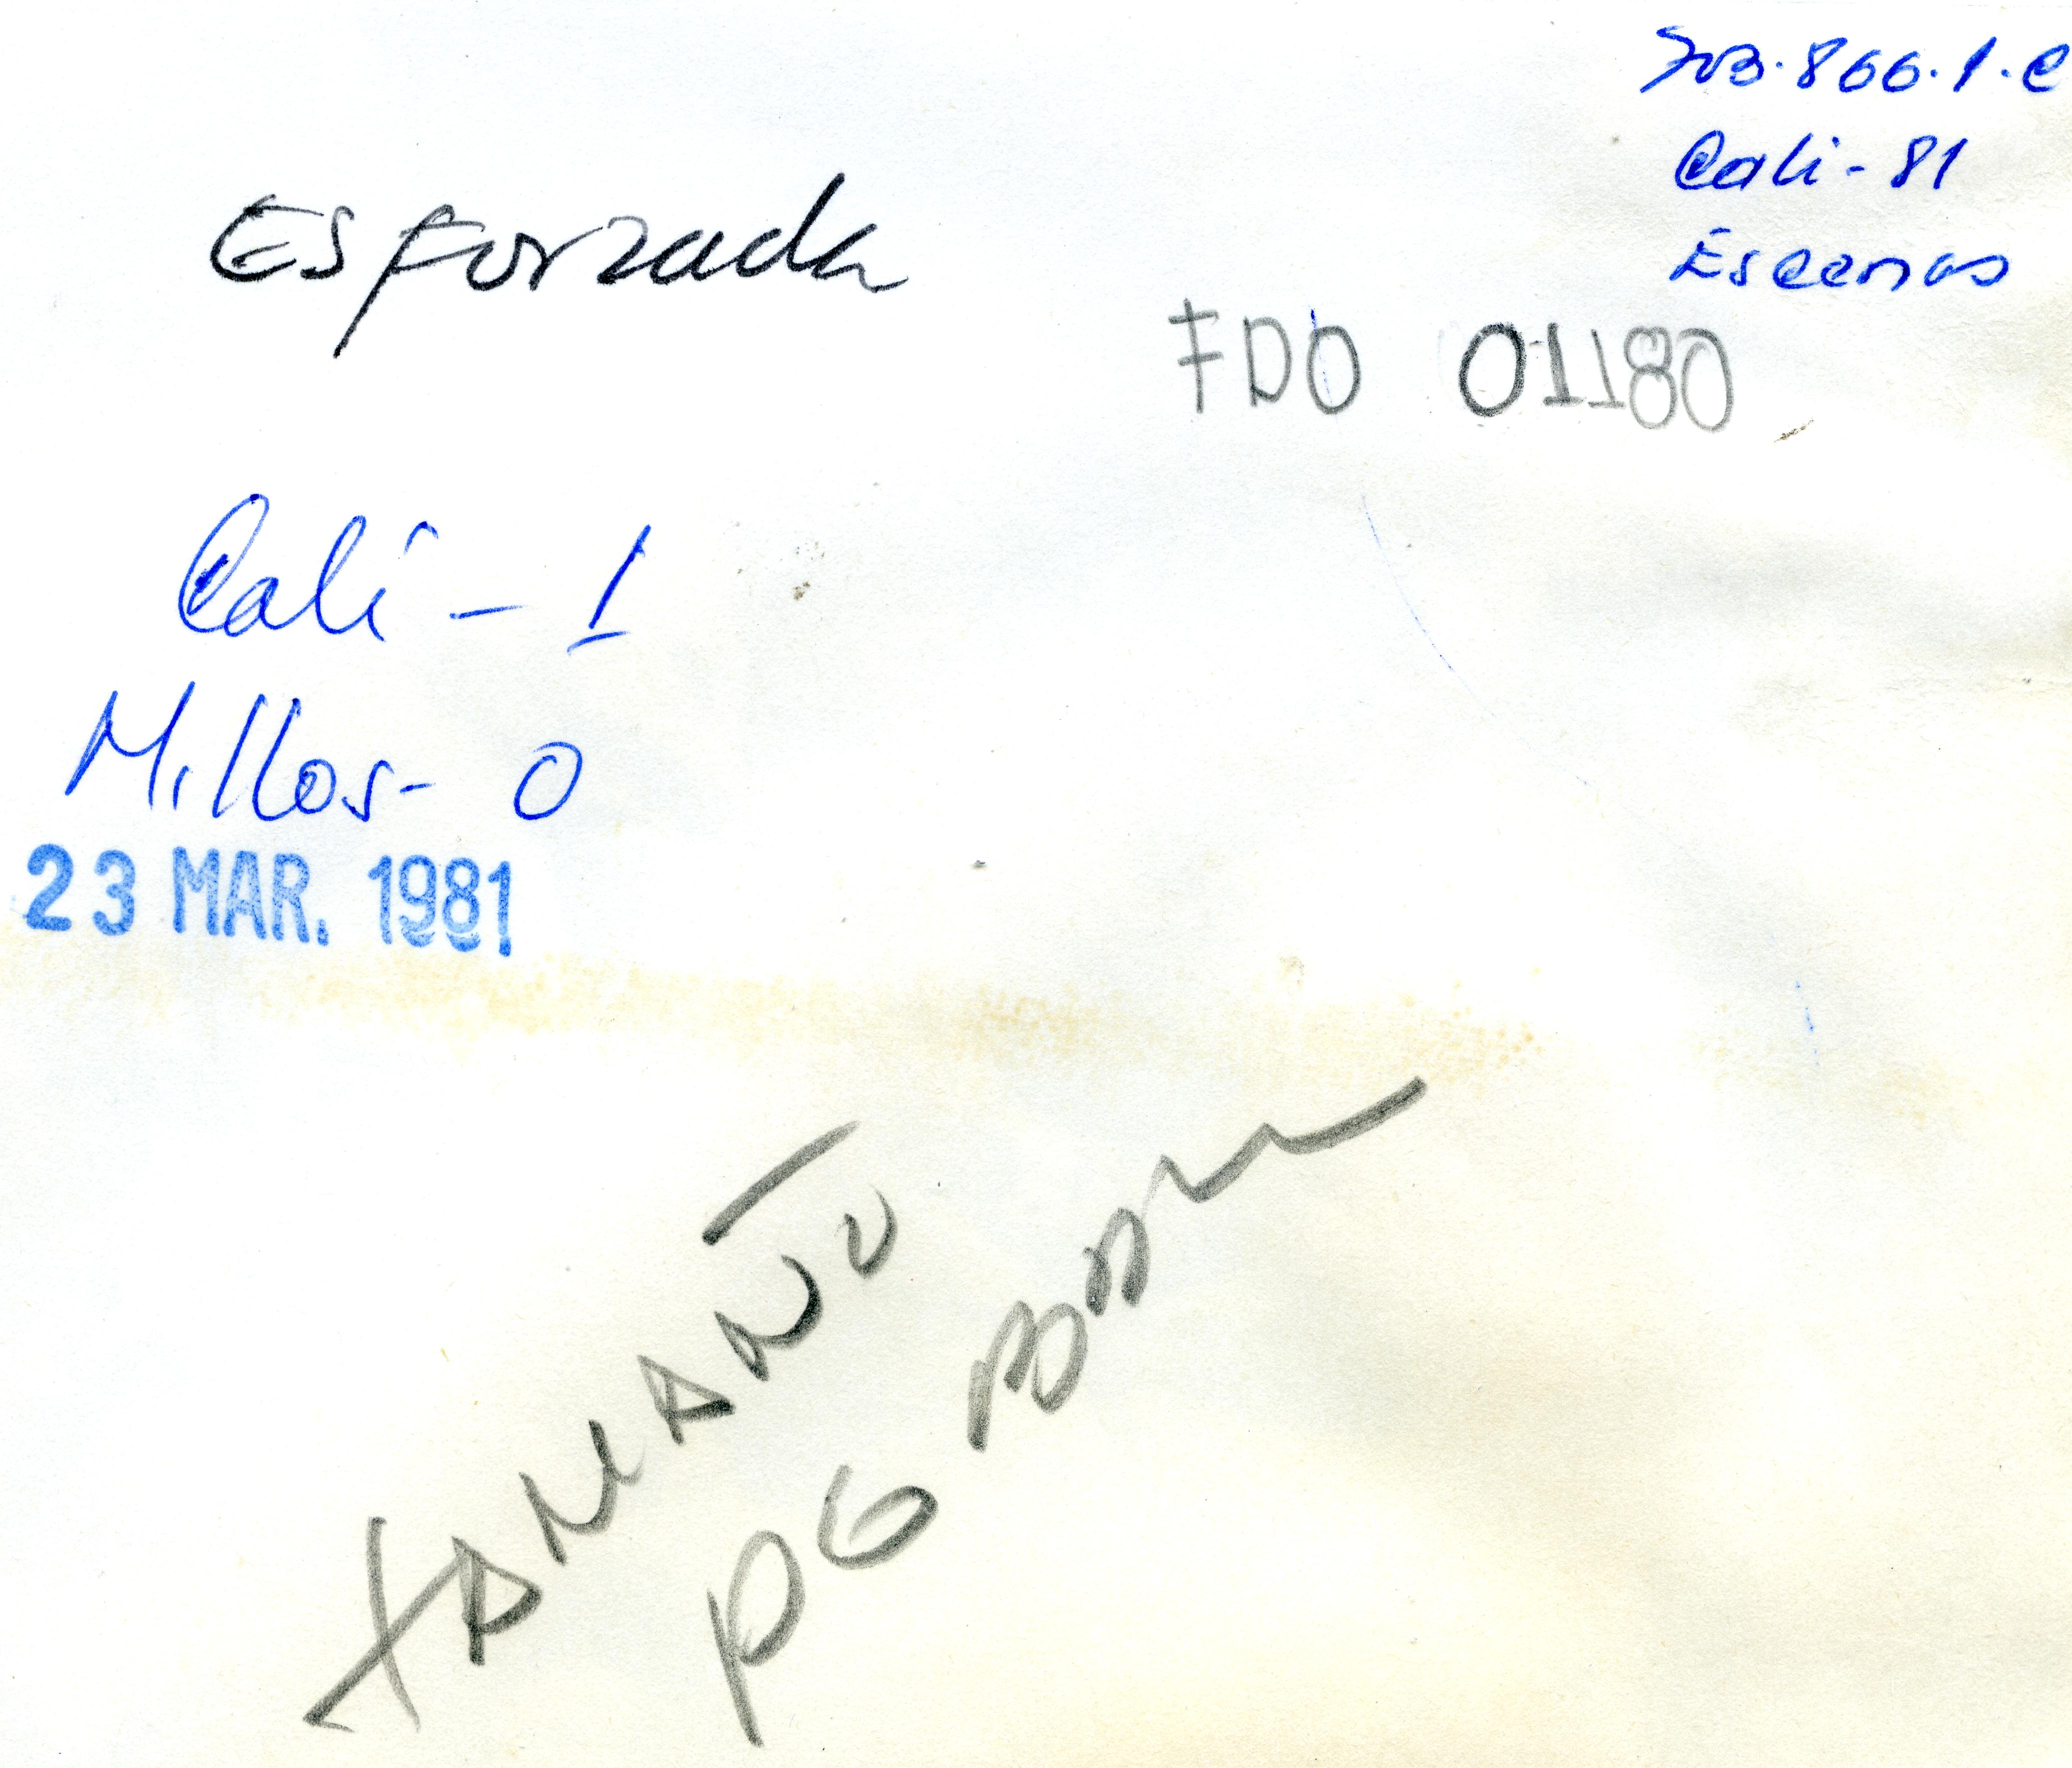 Job.866.1.C
Cali-81
Escenas
Esforzada
FDO 01180
Cali - 1
Millos- 0
23 MAR. 1981
TAMAÑO
PG